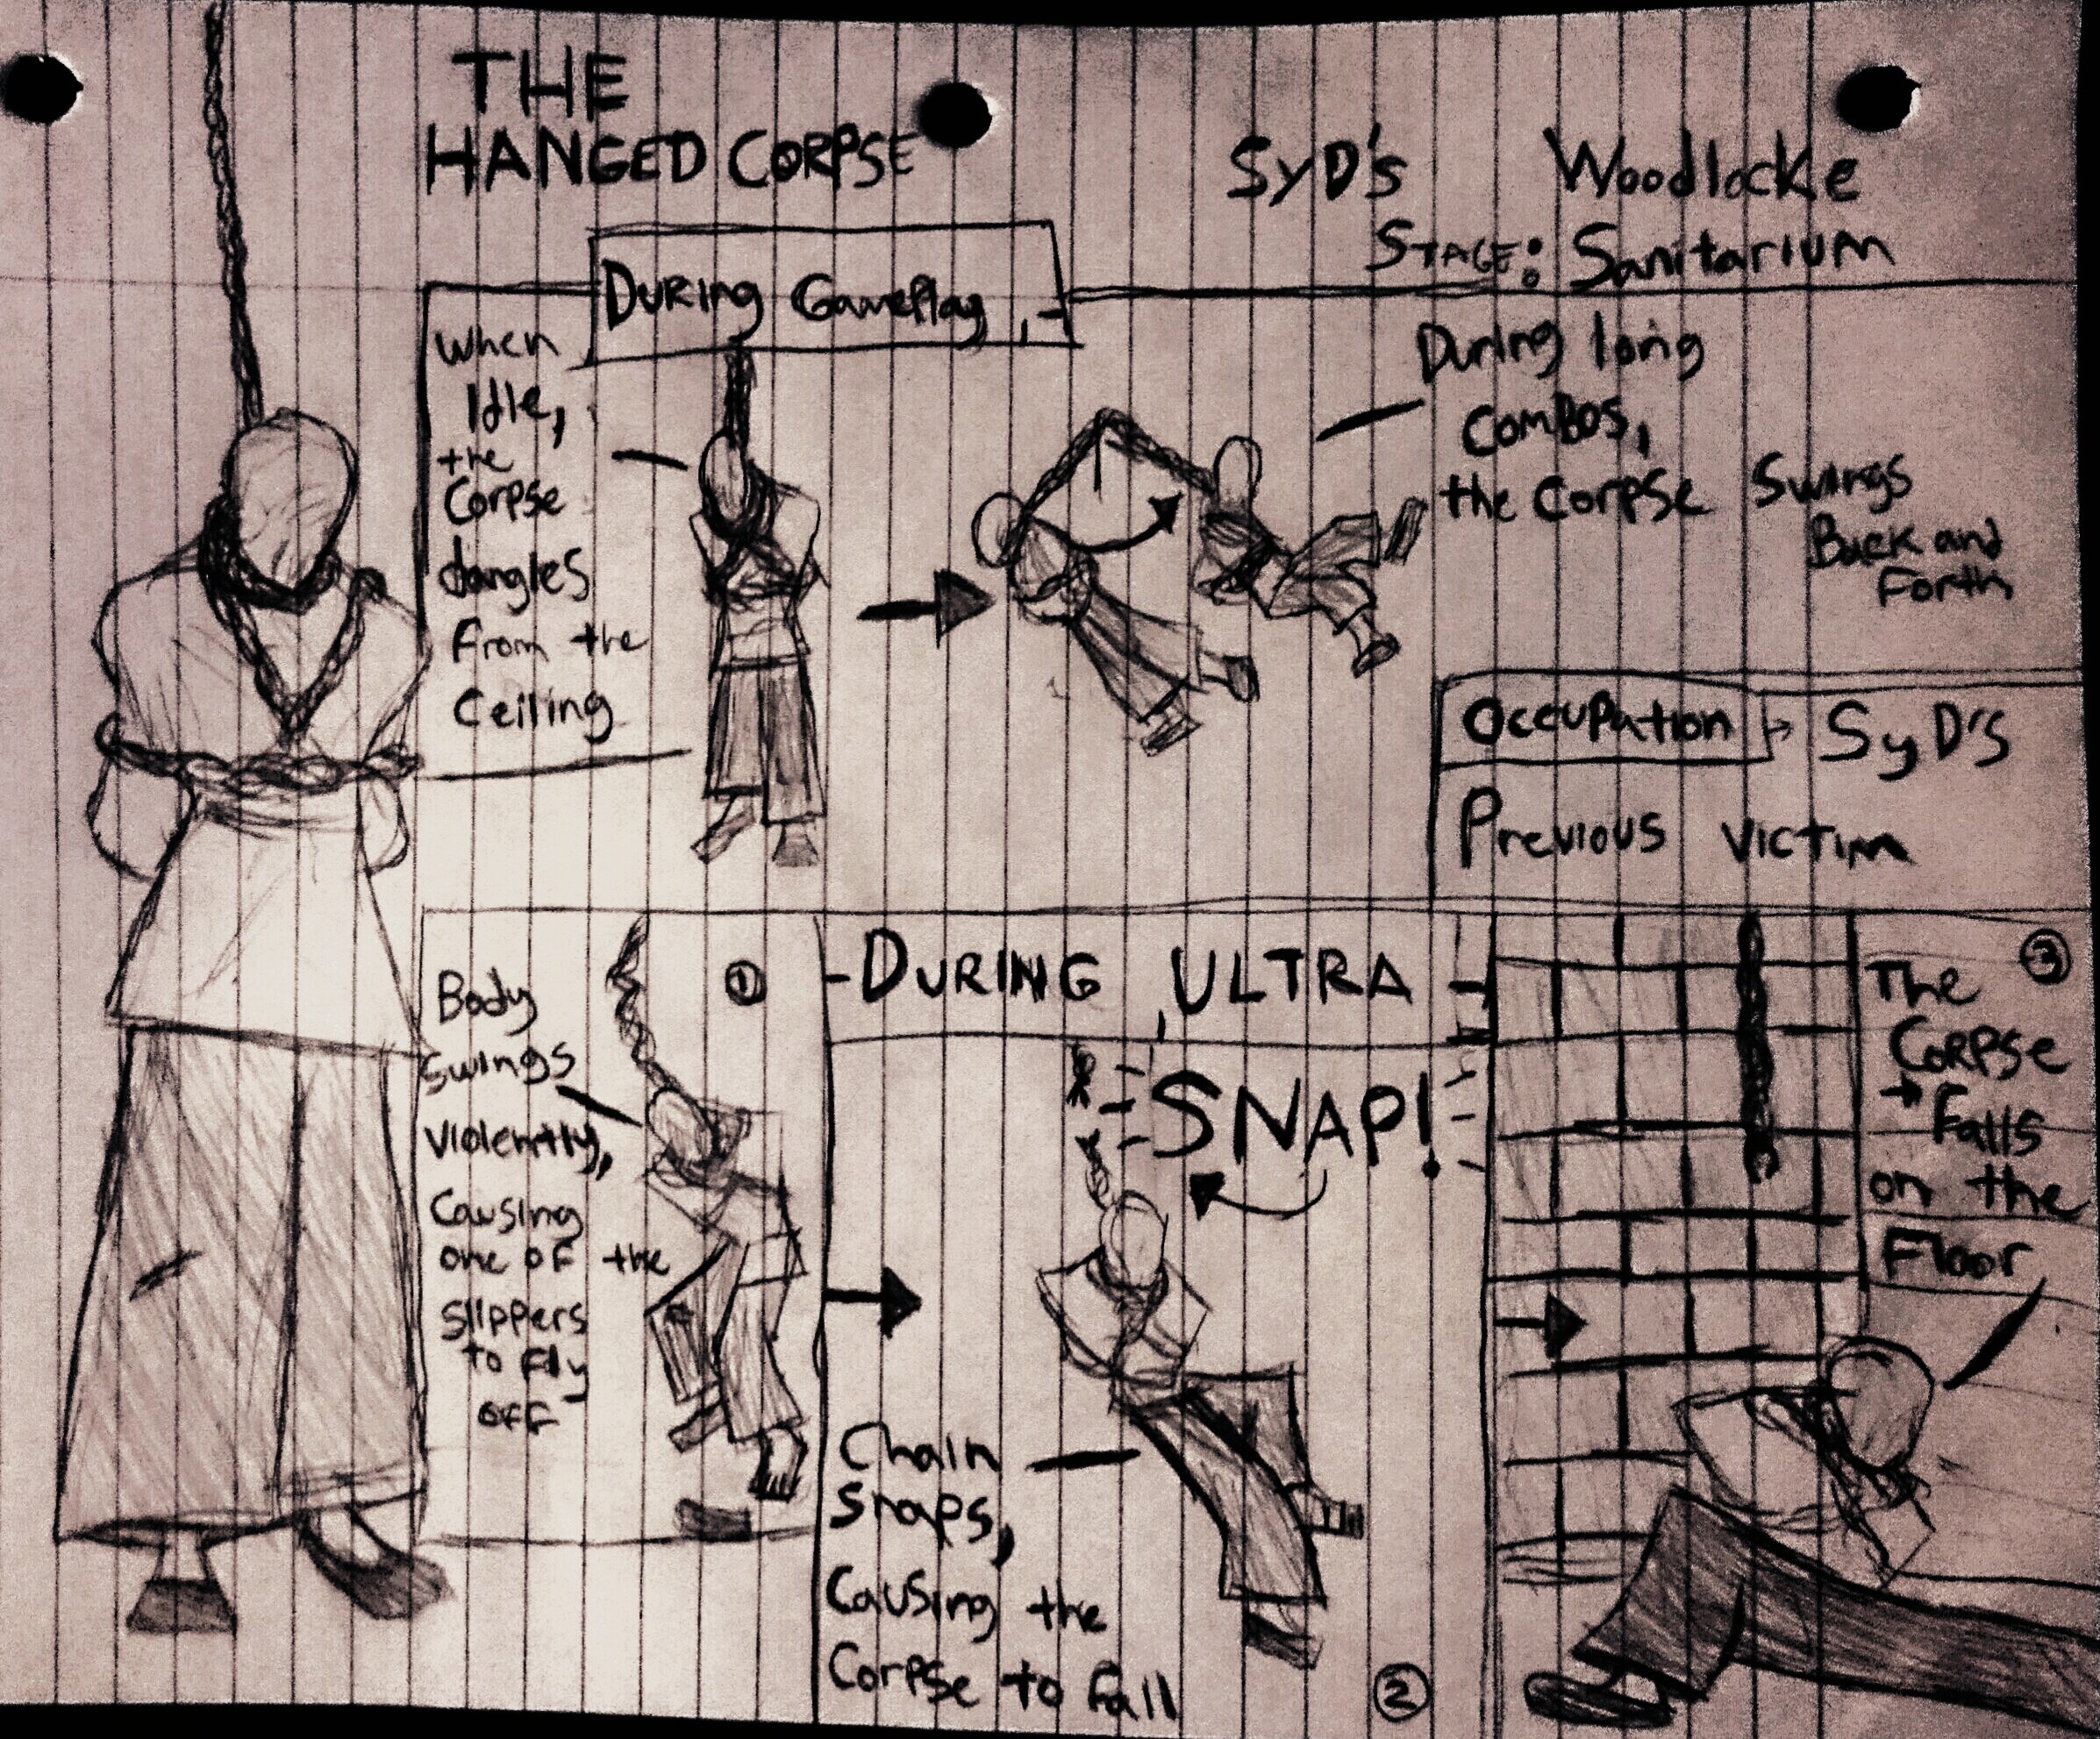 THE
HANGED CORPSE
SyD's Woodlocke
STAGE: Sanitarium
During Gameplay
When
Idle,
the
Corpse
dangles
From the
Ceiling
During long
Combos,
the Corpse Swings
Back and
Forth
Occupation SyD's
Previous Victim
①
Body
Swings
Violently,
Causing
one of the
Slippers
to Fly
off
-DURING ULTRA-
SNAP!
Chain
Snaps,
Causing the
Corpse to fall
②
③
The
Corpse
Falls
on the
Floor